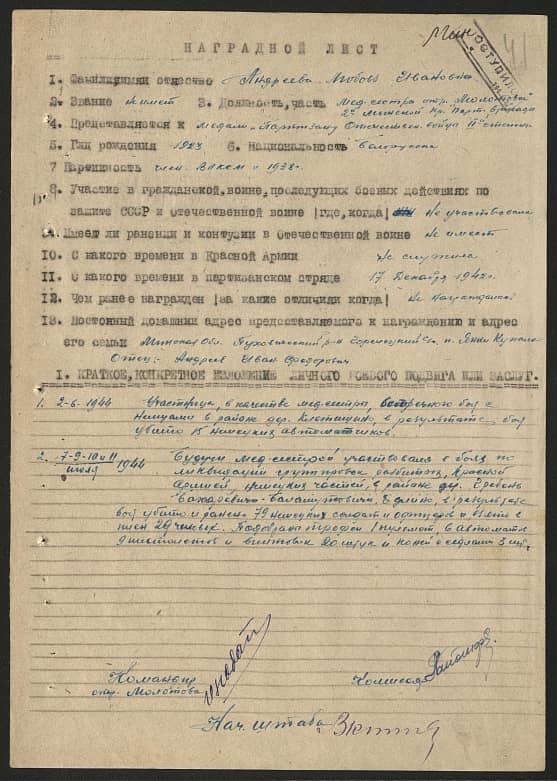 Мин.
ПОСТУПИЛО
41
НАГРАДНОЙ ЛИСТ
1. Фамилия, имя отчество Андреева Любовь Ивановна
2. Звание не имеет 3. Должность, часть Мед-сестра отр. Молотова
2й Минской Кр. Парт. бригада
4. Представляется к медали "Партизану Отечествен. войны" IIй степени
5. Год рождения 1923 6. Национальность Белоруска
7 Партийность член ВЛКСМ с 1938 г.
8. Участие в гражданской, войне, последующих боевых действиях по
защите СССР и отечественной войне |где, когда| Не участвовала
9. Имеет ли ранения и контузии в Отечественной войне не имеет
10. С какого времени в Красной Армии Не служила
11. С какого времени в партизанском отряде 17 декабря 1942 г.
12. Чем ранее награжден |за какие отличия и когда| Не награждалась
13. Постоянный домашний адрес представляемого к награждению и адрес
его семьи Минская обл. Пуховичский р-н п. Янки Купала
Отец:- Андреев Иван
I. КРАТКОЕ, КОНКРЕТНОЕ ИЗЛОЖЕНИЕ ЛИЧНОГО БОЕВОГО ПОДВИГА ИЛИ ЗАСЛУГ.
1. 2-6-1944 Участвуя, в качестве мед.сестры, встречного боя с
немцами в районе дер. в результате боя
убито 15 немецких автоматчиков.
2. 7-9-10 и 11 июля 1944 Будучи мед-сестрой участвовала в боях по
ликвидации группировок разбитых, Красной
Армией, немецких частей, в районе дер. Гребень
в результате
боя убито и ранено 79 немецких солдат и офицеров и взято в
плен 29 человек. Подобраны трофеи 1 пулемет, 6 автоматов
9 пистолетов и винтовок 20 штук и коней с седлами 3 шт.
Командир
отр. Молотова
Комиссар
Нач. штаба